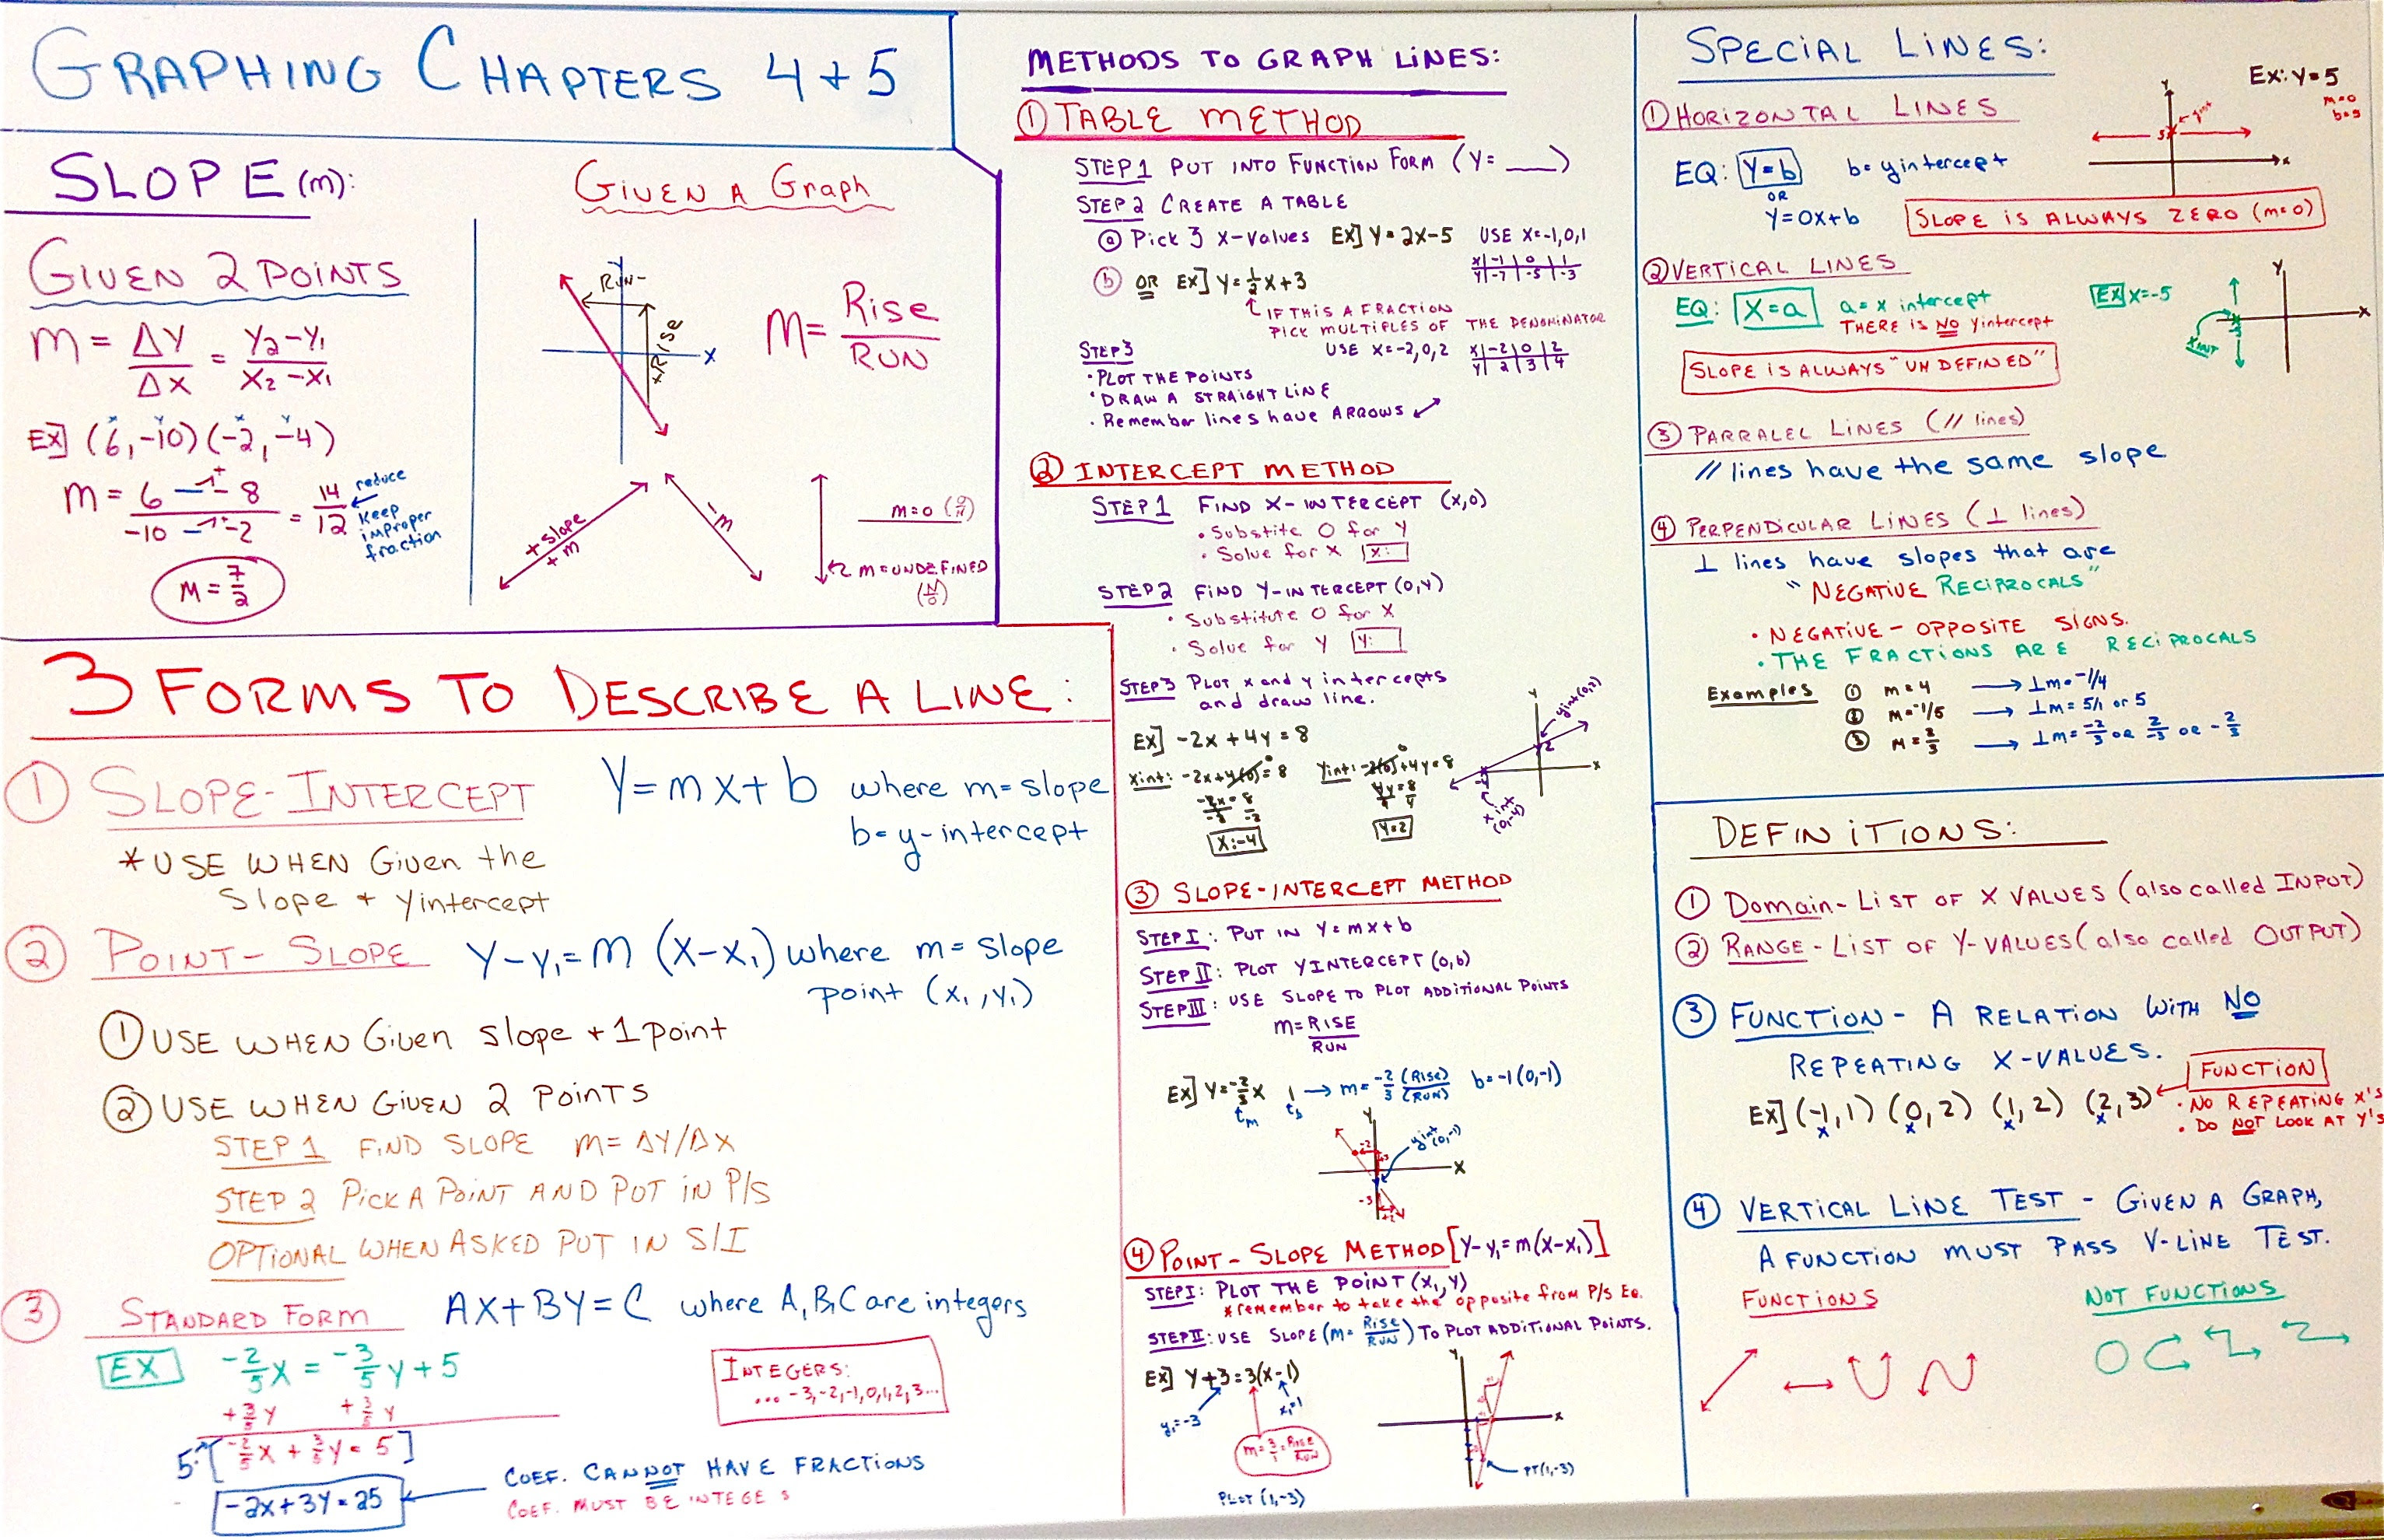 GRAPHING CHAPTERS 4+5
SLOPE (m):
GIVEN 2 POINTS
m = ΔY/ΔX = Y₂-Y₁/X₂-X₁
EX] (6,-10) (-2,-4)
m = 6 - -8 / -10 - -2 = 14/12
reduce
Keep
improper
fraction
m = 7/2
GIVEN A Graph
RUN-
RISE
X
M = Rise/RUN
+ slope
+ m
-m
m=0 (0/N)
m=UNDEFINED
(N/0)
3 FORMS TO DESCRIBE A LINE:
① SLOPE-INTERCEPT Y=mx+b where m=slope
b=y-intercept
*USE WHEN Given the
Slope + yintercept
② POINT-SLOPE Y-Y₁=M (X-X₁) where m=slope
point (X₁,Y₁)
① USE WHEN Given slope +1 point
② USE WHEN GIVEN 2 POINTS
STEP 1 FIND SLOPE M= ΔY/ΔX
STEP 2 PICK A POINT AND PUT IN P/S
OPTIONAL WHEN ASKED PUT IN S/I
③ STANDARD FORM AX+BY=C where A,B,C are integers
EX -2/5X = -3/5Y+5
+3/5Y +3/5Y
5·[-2/5X + 3/5Y = 5]
-2X+3Y=25
COEF. CANNOT HAVE FRACTIONS
COEF. MUST BE INTEGE S
INTEGERS:
... -3,-2,-1,0,1,2,3...
METHODS TO GRAPH LINES:
① TABLE METHOD
STEP 1 PUT INTO FUNCTION FORM (Y= ___)
STEP 2 CREATE A TABLE
ⓐ Pick 3 X-values EX] Y=2X-5 USE X=-1,0,1
X|-1|0|1
Y|-7|-5|-3
ⓑ OR EX] Y=1/2X+3
IF THIS A FRACTION
PICK MULTIPLES OF THE DENOMINATOR
USE X=-2,0,2
X|-2|0|2
Y|2|3|4
STEP 3
·PLOT THE POINTS
·DRAW A STRAIGHT LINE
·Remember lines have ARROWS
② INTERCEPT METHOD
STEP 1 FIND X-INTERCEPT (X,0)
·Substite 0 for Y
·Solve for X X=
STEP 2 FIND Y-INTERCEPT (0,Y)
·Substitute 0 for X
·Solve for Y Y:
STEP 3 PLOT x and y intercepts
and draw line.
EX] -2X+4Y=8
xint: -2x+4(0)=8 Yint: -2(0)+4Y=8
-2x=8 4Y=8
X=-4 Y=2
yint(0,2)
2
-4
X
xint
(0,-4)
③ SLOPE-INTERCEPT METHOD
STEP I: PUT IN Y=mx+b
STEP II: PLOT YINTERCEPT (0,b)
STEP III: USE SLOPE TO PLOT ADDITIONAL POINTS
m=RISE/RUN
EX] Y=-2/3X 1 → m=-2/3 (RISE)/(RUN) b=-1 (0,-1)
yint(0,-1)
X
④ POINT-SLOPE METHOD [Y-Y₁=m(X-X₁)]
STEP I: PLOT THE POINT (X₁,Y)
*remember to take the opposite from P/S EQ.
STEP II: USE SLOPE (M=RISE/RUN) TO PLOT ADDITIONAL POINTS.
EX] Y+3=3(X-1)
y₁=-3
x₁=1
m=3/1=RISE/RUN
PLOT (1,-3)
X
PT(1,-3)
SPECIAL LINES:
① HORIZONTAL LINES
EQ: Y=b b=yintercept
OR
Y=0X+b
EX: Y=5
m=0
b=5
Y
5
X
SLOPE IS ALWAYS ZERO (M=0)
② VERTICAL LINES
EQ: X=a a=x intercept
THERE IS NO Yintercept
EX X=-5
Y
X
SLOPE IS ALWAYS "UNDEFINED"
③ PARRALEL LINES (// lines)
// lines have the same slope
④ PERPENDICULAR LINES (⊥ lines)
⊥ lines have slopes that are
"NEGATIVE RECIPROCALS"
·NEGATIVE-OPPOSITE SIGNS.
·THE FRACTIONS ARE RECIPROCALS
Examples ① m=4 → ⊥m=-1/4
② m=-1/5 → ⊥m=5/1 or 5
③ M=3/2 → ⊥m=-2/3 OR 2/-3 OR -2/3
DEFINITIONS:
① Domain-LIST OF X VALUES (also called INPUT)
② RANGE-LIST OF Y-VALUES (also called OUTPUT)
③ FUNCTION- A RELATION WITH NO
REPEATING X-VALUES.
EX] (-1,1) (0,2) (1,2) (2,3)
X X X X
FUNCTION
·NO REPEATING X'S
·DO NOT LOOK AT Y'S
④ VERTICAL LINE TEST - GIVEN A GRAPH,
A FUNCTION MUST PASS V-LINE TEST.
FUNCTIONS
NOT FUNCTIONS